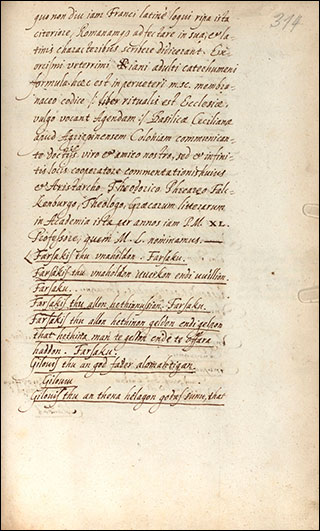 314
quo non diu iam Franci latinè loqui ripa ista
citeriore, Romanamque adfectare in sua, et la-
tinis charactribus scribere didicerant. Ex-
orcismi veterrimi Christiani adulti catechumeni
formula hæc est in perveteri msc. membra-
naceo codice sive liber ritualis est Ecclesiæ,
vulgo vocant Agendam sive Basilicæ Cæcilianæ
apud Agrippinensem Coloniam communican-
te doctiss. viro et amico nostro, sed et infini-
tis locis cooperatore commentationis huius
et Aristarcho, Theodorico Phræaeo Fal-
kenburgo, Theologo, Græcarum litterarum
in Academia ista per annos iam P.M. XL.
Professore, quem M. L. nominamus.
Farsakis thu unaholdon. Farsaku.
Farsakis thu unaholdon wuerkon endi wuillion.
Farsaku.
Farsakis thu allon hethinussion. Farsaku.
Farsakis thu allon hethinon geldon endi gelpon
that hethina man te geldon ende te offara
haddon. Farsaku.
Gilouis thu an god fader alomahtigan.
Gilouiu
Gilouis thu an thena helagon godes sunu, that